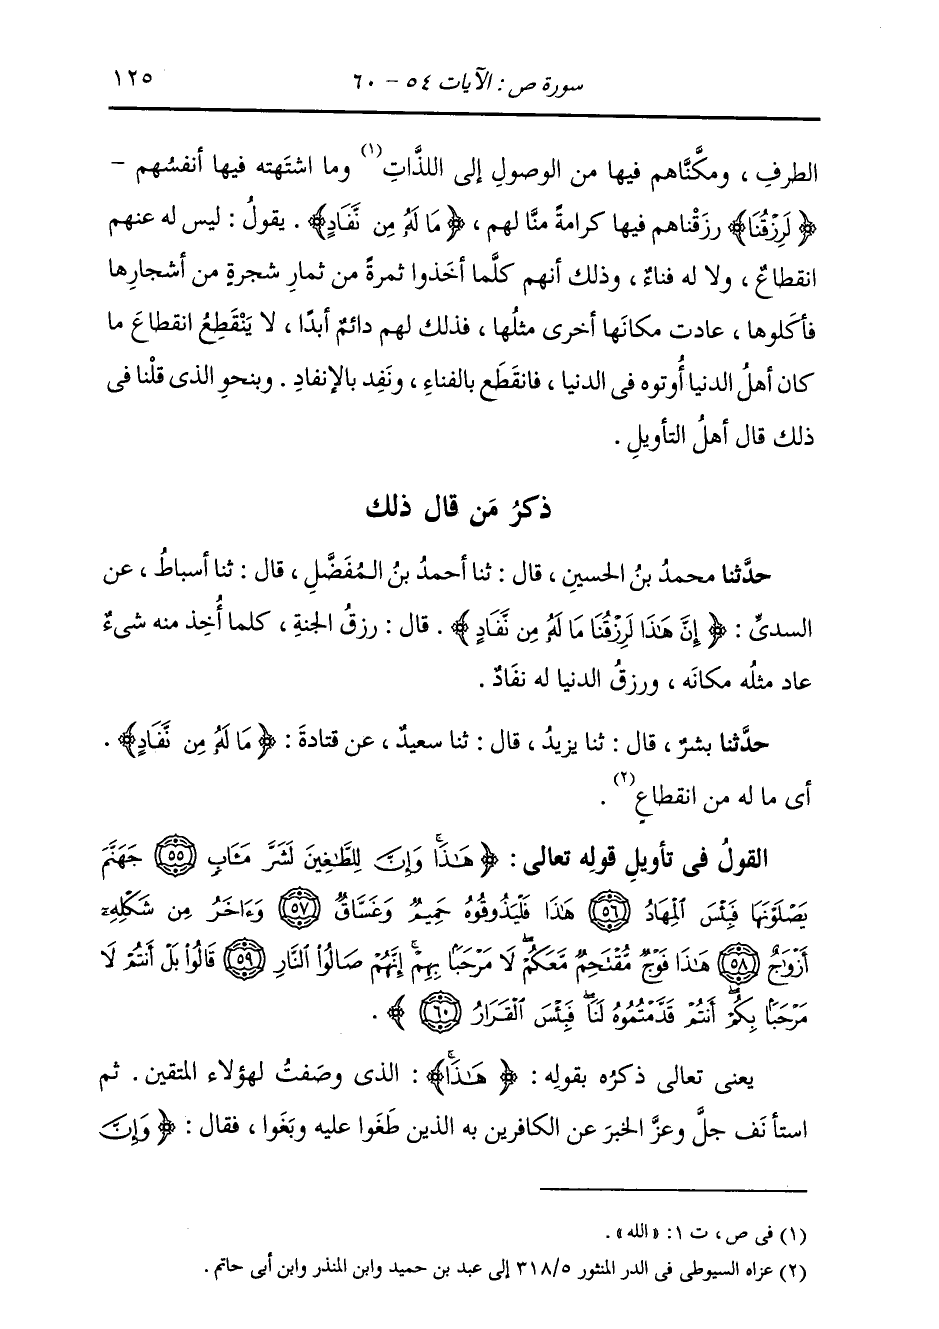 سورة ص : الآيات ٥٤ - ٦٠ ١٢٥
الطرفِ ، ومكَّنَّاهم فيها من الوصولِ إلى اللذَّاتِ(١) وما اشتَهته فيها أنفسُهم -
﴿ لَرِزْقُنَا ﴾ رزَقْناهم فيها كرامةً منَّا لهم ، ﴿ مَا لَهُ مِن نَّفَادٍ ﴾ . يقولُ : ليس له عنهم
انقطاعٌ ، ولا له فناءٌ ، وذلك أنهم كلَّما أخَذوا ثمرةً من ثمارِ شجرةٍ من أشجارِها
فأكَلوها ، عادت مكانَها أخرى مثلُها ، فذلك لهم دائمٌ أبدًا ، لا يَنْقَطِعُ انقطاعَ ما
كان أهلُ الدنيا أُوتوه فى الدنيا ، فانقَطَع بالفناءِ ، ونَفِد بالإنفادِ . وبنحوِ الذى قلْنا فى
ذلك قال أهلُ التأويلِ .
ذكرُ مَن قال ذلك
حدَّثنا محمدُ بنُ الحسينِ ، قال : ثنا أحمدُ بنُ المُفَضَّلِ ، قال : ثنا أسباطُ ، عن
السدىِّ : ﴿ إِنَّ هَٰذَا لَرِزْقُنَا مَا لَهُ مِن نَّفَادٍ ﴾ . قال : رزقُ الجنةِ ، كلما أُخِذ منه شىءٌ
عاد مثلُه مكانَه ، ورزقُ الدنيا له نفَادٌ .
حدَّثنا بشرٌ ، قال : ثنا يزيدُ ، قال : ثنا سعيدٌ ، عن قتادةَ : ﴿ مَا لَهُ مِن نَّفَادٍ ﴾ .
أى ما له من انقطاعٍ(٢) .
القولُ فى تأويلِ قولِه تعالى : ﴿ هَٰذَا وَإِنَّ لِلطَّاغِينَ لَشَرَّ مَـَٔابٍ ٥٥ جَهَنَّمَ
يَصْلَوْنَهَا فَبِئْسَ ٱلْمِهَادُ ٥٦ هَٰذَا فَلْيَذُوقُوهُ حَمِيمٌ وَغَسَّاقٌ ٥٧ وَءَاخَرُ مِن شَكْلِهِۦٓ
أَزْوَٰجٌ ٥٨ هَٰذَا فَوْجٌ مُّقْتَحِمٌ مَّعَكُمْ ۖ لَا مَرْحَبًۢا بِهِمْ ۚ إِنَّهُمْ صَالُوا۟ ٱلنَّارِ ٥٩ قَالُوا۟ بَلْ أَنتُمْ لَا
مَرْحَبًۢا بِكُمْ ۖ أَنتُمْ قَدَّمْتُمُوهُ لَنَا ۖ فَبِئْسَ ٱلْقَرَارُ ٦٠ ﴾ .
يعنى تعالى ذكرُه بقولِه : ﴿ هَٰذَا ۚ ﴾ : الذى وصَفتُ لهؤلاء المتقين . ثم
استأنَف جلَّ وعزَّ الخبرَ عن الكافرين به الذين طَغَوا عليه وبَغَوا ، فقال : ﴿ وَإِنَّ
(١) فى ص ، ت ١: «الله» .
(٢) عزاه السيوطى فى الدر المنثور ٣١٨/٥ إلى عبد بن حميد وابن المنذر وابن أبى حاتم .